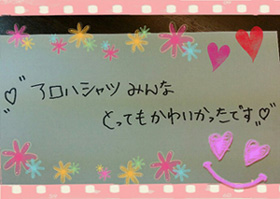 ♡アロハシャツ みんな
とってもかわいかったです♡